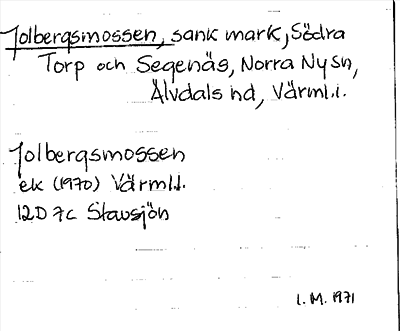 Jolbergsmossen, sank mark, Södra
Torp och Segenäs, Norra Ny sn,
Älvdals hd, Värml.
Jolbergsmossen
ek (1970) Värml.
12D 7c Stavsjön
I. M. 1971